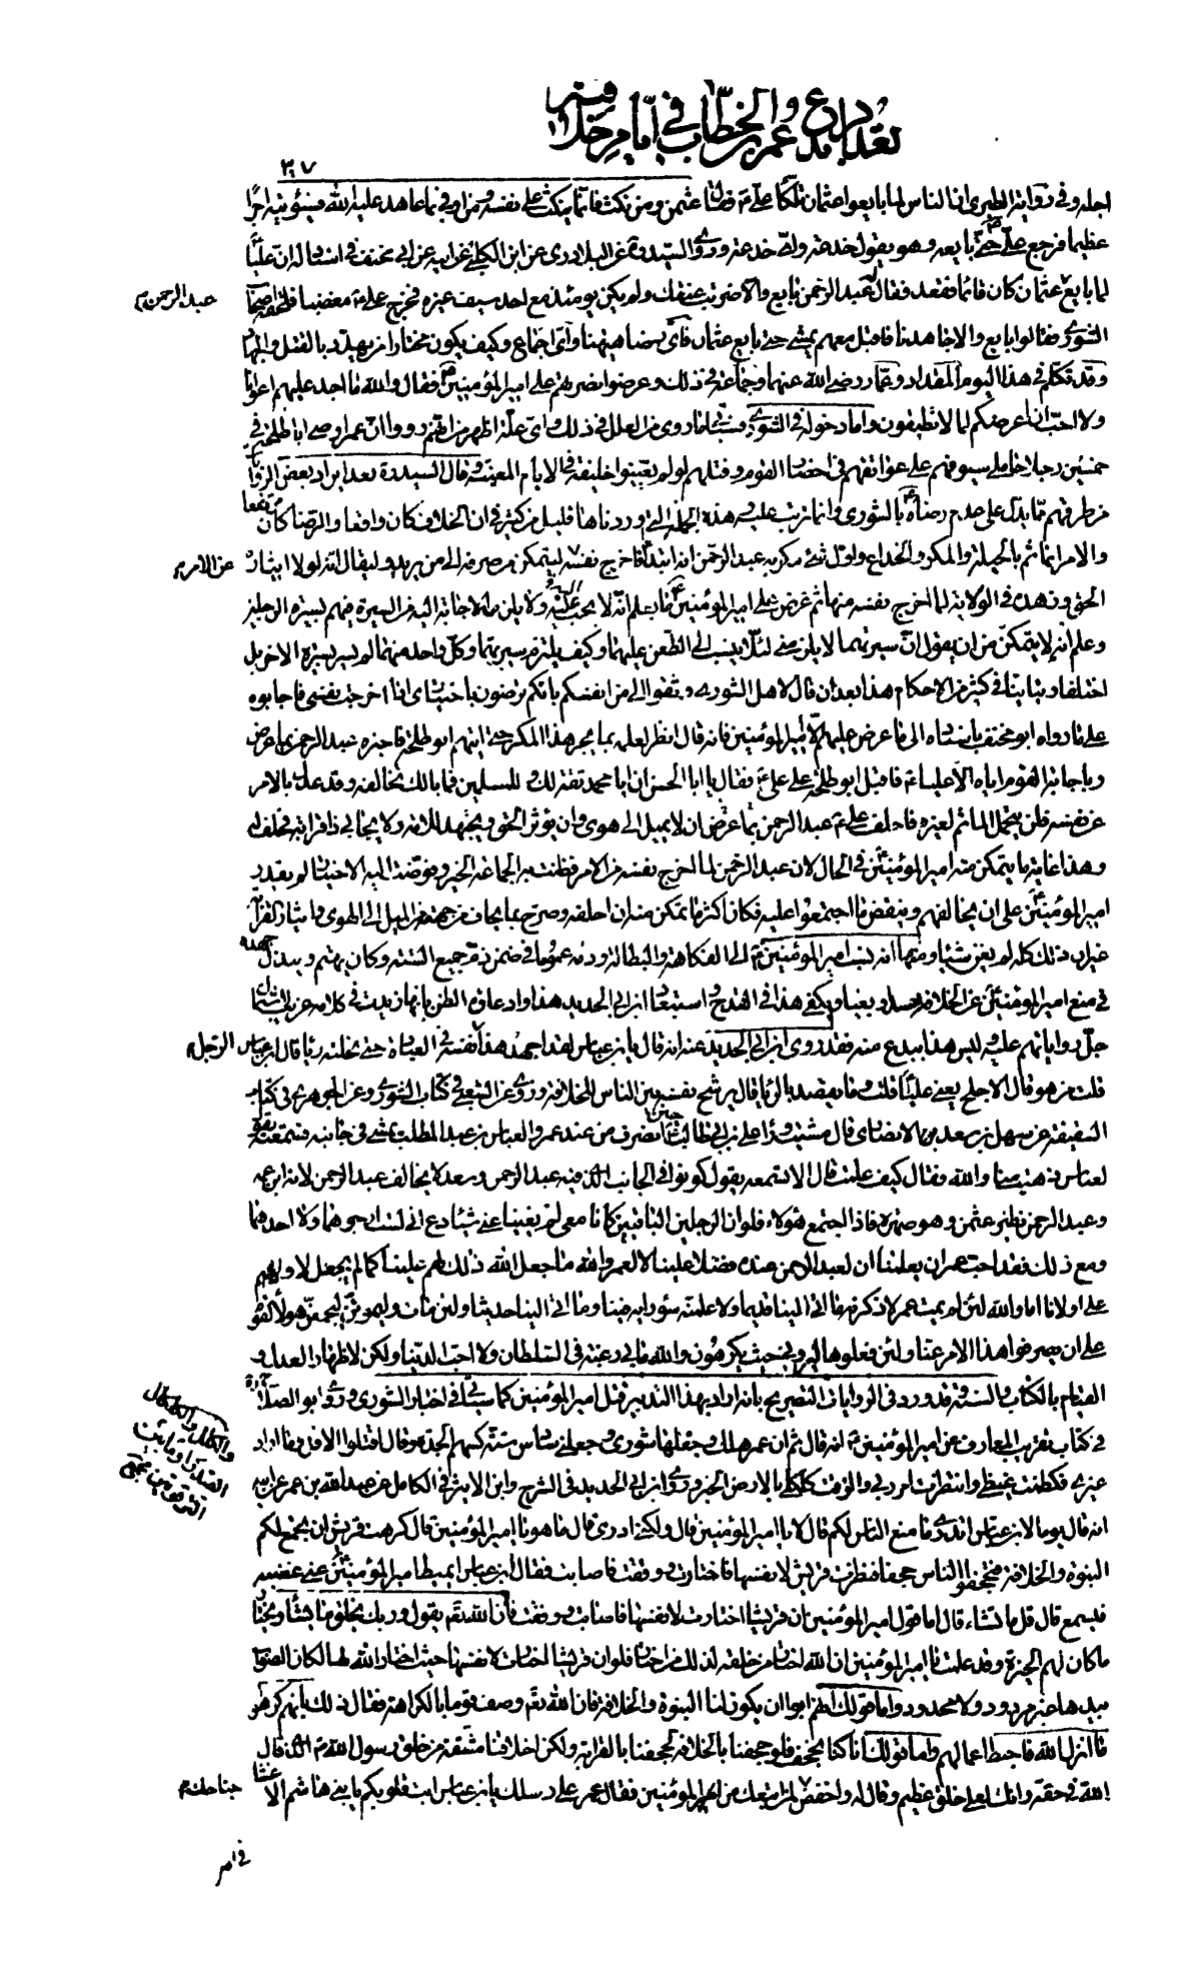 تعداد بدع عمر بن الخطاب في أيام خلافته
٣٠٧
اجله وفي رواية الطبري ان الناس لما بايعوا عثمان تلكأ علي ع فقال عثمن ومن نكث فانما ينكث على نفسه ومن اوفى بما عاهد عليه الله فسيؤتيه اجرا
عظيما فرجع علي حتى بايعه وهو يقول خدعة واي خدعة وروى السيد ره عن البلاذري عن ابن الكلبي عن ابيه عن ابي مخنف في اسناد له ان عليا
لما بايع عثمان كان قائما فقعد فقال له عبد الرحمن بايع والا ضربت عنقك ولم يكن يومئذ مع احد سيف غيره فخرج علي ع مغضبا فلحقه اصحاب
عبد الرحمن
الشورى فقالوا بايع والا جاهدناك فاقبل معهم يمشي حتى بايع عثمان فاي رضا هيهنا واي اجماع وكيف يكون مختارا من يهدد بالقتل والجهاد
وقد تكلم في هذا اليوم المقداد وعمار رضي الله عنهما وجماعة في ذلك وعرضوا نصرتهم على امير المؤمنين ع فقال والله ما اجد عليهم اعوانا
ولا احب ان اعرضكم لما لا تطيقون واما دخوله في الشورى فسيأتي ما روي من العلل في ذلك واي علة اظهر من انهم رووا ان عمر اوصى ابا طلحة في
خمسين رجلا حاملي سيوفهم على عواتقهم في احضار القوم وقتلهم لو لم يعينوا خليفة في الايام المعينة وقال السيد ره بعد ايراد بعض الروايات
من طرقهم مما يدل على عدم رضاه ع بالشورى وانما رتب عليه هذه الجملة التي وردناها قليل من كثير في ان الخلاف كان واقعا والرضا كان مرتفعا
والامر انما تم بالحيلة والمكر والخداع واول شئ مكر به عبد الرحمن انه ابتدأ فاخرج نفسه ليتمكن من صرفه الى من يريد وليقال انه لولا ايثاره
عن الامر
الحق وزهده في الولاية لما اخرج نفسه منها ثم عرض على امير المؤمنين ع ما يعلم انه لا يجيب اليه ولا يلزمه الاجابة اليه من السيرة فيهم بسيرة الرجلين
وعلم انه لا يتمكن من ان يقول ان سيرتهما لا يلزمني لئلا ينسب الى الطعن عليهما وكيف يلتزم سيرتهما وكل واحد منهما لم يسر بسيرة الاخر بل
اختلفا وتباينا في كثير من الاحكام هذا بعد ان قال لاهل الشورى وثقوا الي من انفسكم بانكم ترضون باختياري اذا اخرجت نفسي فاجابوه
على ما رواه ابو مخنف باسناده الى ما عرض عليهم الا امير المؤمنين فانه قال انظر لعلمه بما يجر هذا المكر حتى اتيهم ابو طلحة فاخبره عبد الرحمن بما عرض
وباجابة القوم اياه الا عليا ع فاقبل ابو طلحة على علي ع فقال يا ابا الحسن ان ابا محمد ثقة لك وللمسلمين فما بالك تخالفه وقد عدل بالامر
عن نفسه فلن يتحمل المأثم لغيره فاحلف علي ع عبد الرحمن بما عرض ان لا يميل الى هوى وان يؤثر الحق ويجتهد للامة ولا يحابي ذا قرابة فحلف له
وهذا غاية ما يتمكن منه امير المؤمنين في الحال لان عبد الرحمن لما اخرج نفسه من الامر فظنت به الجماعة الخير وفوضت اليه الاختيار لم يقدر
امير المؤمنين على ان يخالفهم وينقض ما اجتمعوا عليه فكان اكثر ما تمكن منه ان احلفه وصرح بما يخاف من جهته من الميل الى الهوى وايثار القرابة
غير ان ذلك كله لم يغن شيئا ومنها انه نسب امير المؤمنين ع الى الفكاهة والبطالة وذمه عموما في ضمن ذم جميع الستة وكان يهتم ويبذل جهده
في منع امير المؤمنين عن الخلافة حسدا وبغيا ويكفي هذا في القدح واستبعاد ابن ابي الحديد هذا وادعاؤه الظن بانها زيدت في كلامه غريب
جل رواياتهم عليه وليس هذا ببدع منه فقد روى ابن ابي الحديد عنه انه قال يا بن عباس لقد اجهد هذا نفسه في العبادة حتى نحلته رياء قال ابن عباس
الرجل
قلت من هو قال الاجلح يعني عليا قلت وما يقصد بالرياء قال يرشح نفسه بين الناس للخلافة وروى عن الشعبي في كتاب الشورى وعن الجوهري في كتاب
السقيفة عن سهل بن سعد الانصاري قال مشيت وراء علي بن ابي طالب حين انصرف من عند عمر والعباس بن عبد المطلب يمشي في جانبه فسمعته يقول
لعباس ذهبت منا والله فقال كيف علمت قال الا تسمعه يقول كونوا في الجانب الذي فيه عبد الرحمن وسعد لا يخالف عبد الرحمن لانه ابن عمه
وعبد الرحمن نظير عثمن وهو صهره فاذا اجتمع هؤلاء فلو ان الرجلين الباقيين كانا معي لم يغنيا عني شيئا دع اني لست ارجوهما ولا احدهما
ومع ذلك فقد احب عمر ان يعلمنا ان لعبد الرحمن عنده فضلا علينا لا لعمر والله ما جعل الله ذلك لهم علينا كما لم يجعل لاوليهم
على اولانا اما والله لئن لم يمت عمر لاذكرنه ما اتى الينا قديما ولاعلمنه سوء رايه فينا وما اتى الينا حديثا ولئن مات وليموتن ليجتمعن هؤلاء القوم
على ان يصرفوا هذا الامر عنا ولئن فعلوها ليروني حيث يكرهون والله ما بي رغبة في السلطان ولا احب الدنيا ولكن لاظهار العدل و
القيام بالكتاب والسنة وقد ورد في الروايات التصريح بانه اراد بهذا التدبير قتل امير المؤمنين كما سيأتي في اخبار الشورى وروى ابو الصلاح
في كتاب تقريب المعارف عن امير المؤمنين ع انه قال ثم ان عمر هلك وجعلها شورى وجعلني سادس ستة كسهم الجدة وقال اقتلوا الاقل وما اراد
غيري فكظمت غيظي وانتظرت امر ربي والزقت كلكلي بالارض الخبر وروى ابن ابي الحديد في الشرح وابن الاثير في الكامل عن عبد الله بن عمر عن ابيه
انه قال يوما لابن عباس اتدري ما منع الناس لكم قال لا يا امير المؤمنين قال ولكني ادري قال ما هو يا امير المؤمنين قال كرهت قريش ان يجتمع لكم
النبوة والخلافة فتجخفوا الناس جخفا فنظرت قريش لانفسها فاختارت ووفقت فاصابت فقال ابن عباس ايميط امير المؤمنين عني غضبه
فيسمع قال قل ما تشاء قال اما قول امير المؤمنين ان قريشا اختارت لانفسها فاصابت ووفقت فان الله تع يقول وربك يخلق ما يشاء ويختار
ما كان لهم الخيرة وقد علمت يا امير المؤمنين ان الله اختار من خلقه لذلك من اختار فلو ان قريشا اختارت لانفسها حيث اختار الله لها لكان الصواب
بيدها غير مردود ولا محدود واما قولك انهم ابوا ان يكون لنا النبوة والخلافة فان الله تع وصف قوما بالكراهة فقال ذلك بانهم كرهوا
ما انزل الله فاحبط اعمالهم واما قولك انا كنا نجخف فلو جخفنا بالخلافة لجخفنا بالقرابة ولكن اخلاقنا مشتقة من خلق رسول الله ص الذي قال
الله في حقه وانك لعلى خلق عظيم وقال له واخفض لمن اتبعك من المؤمنين فقال عمر على رسلك يا بن عباس ابت قلوبكم يا بني هاشم الا غشا
جناحك
في امر